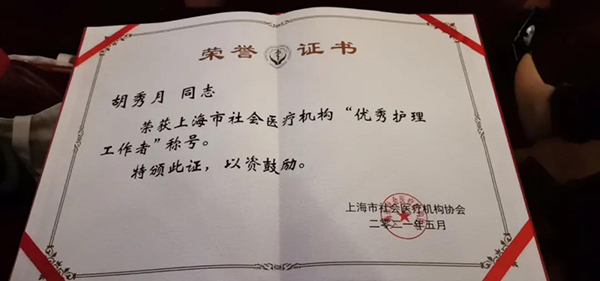 荣誉证书
胡秀月 同志
荣获上海市社会医疗机构“优秀护理
工作者”称号。
特颁此证，以资鼓励。
上海市社会医疗机构协会
二零二一年五月